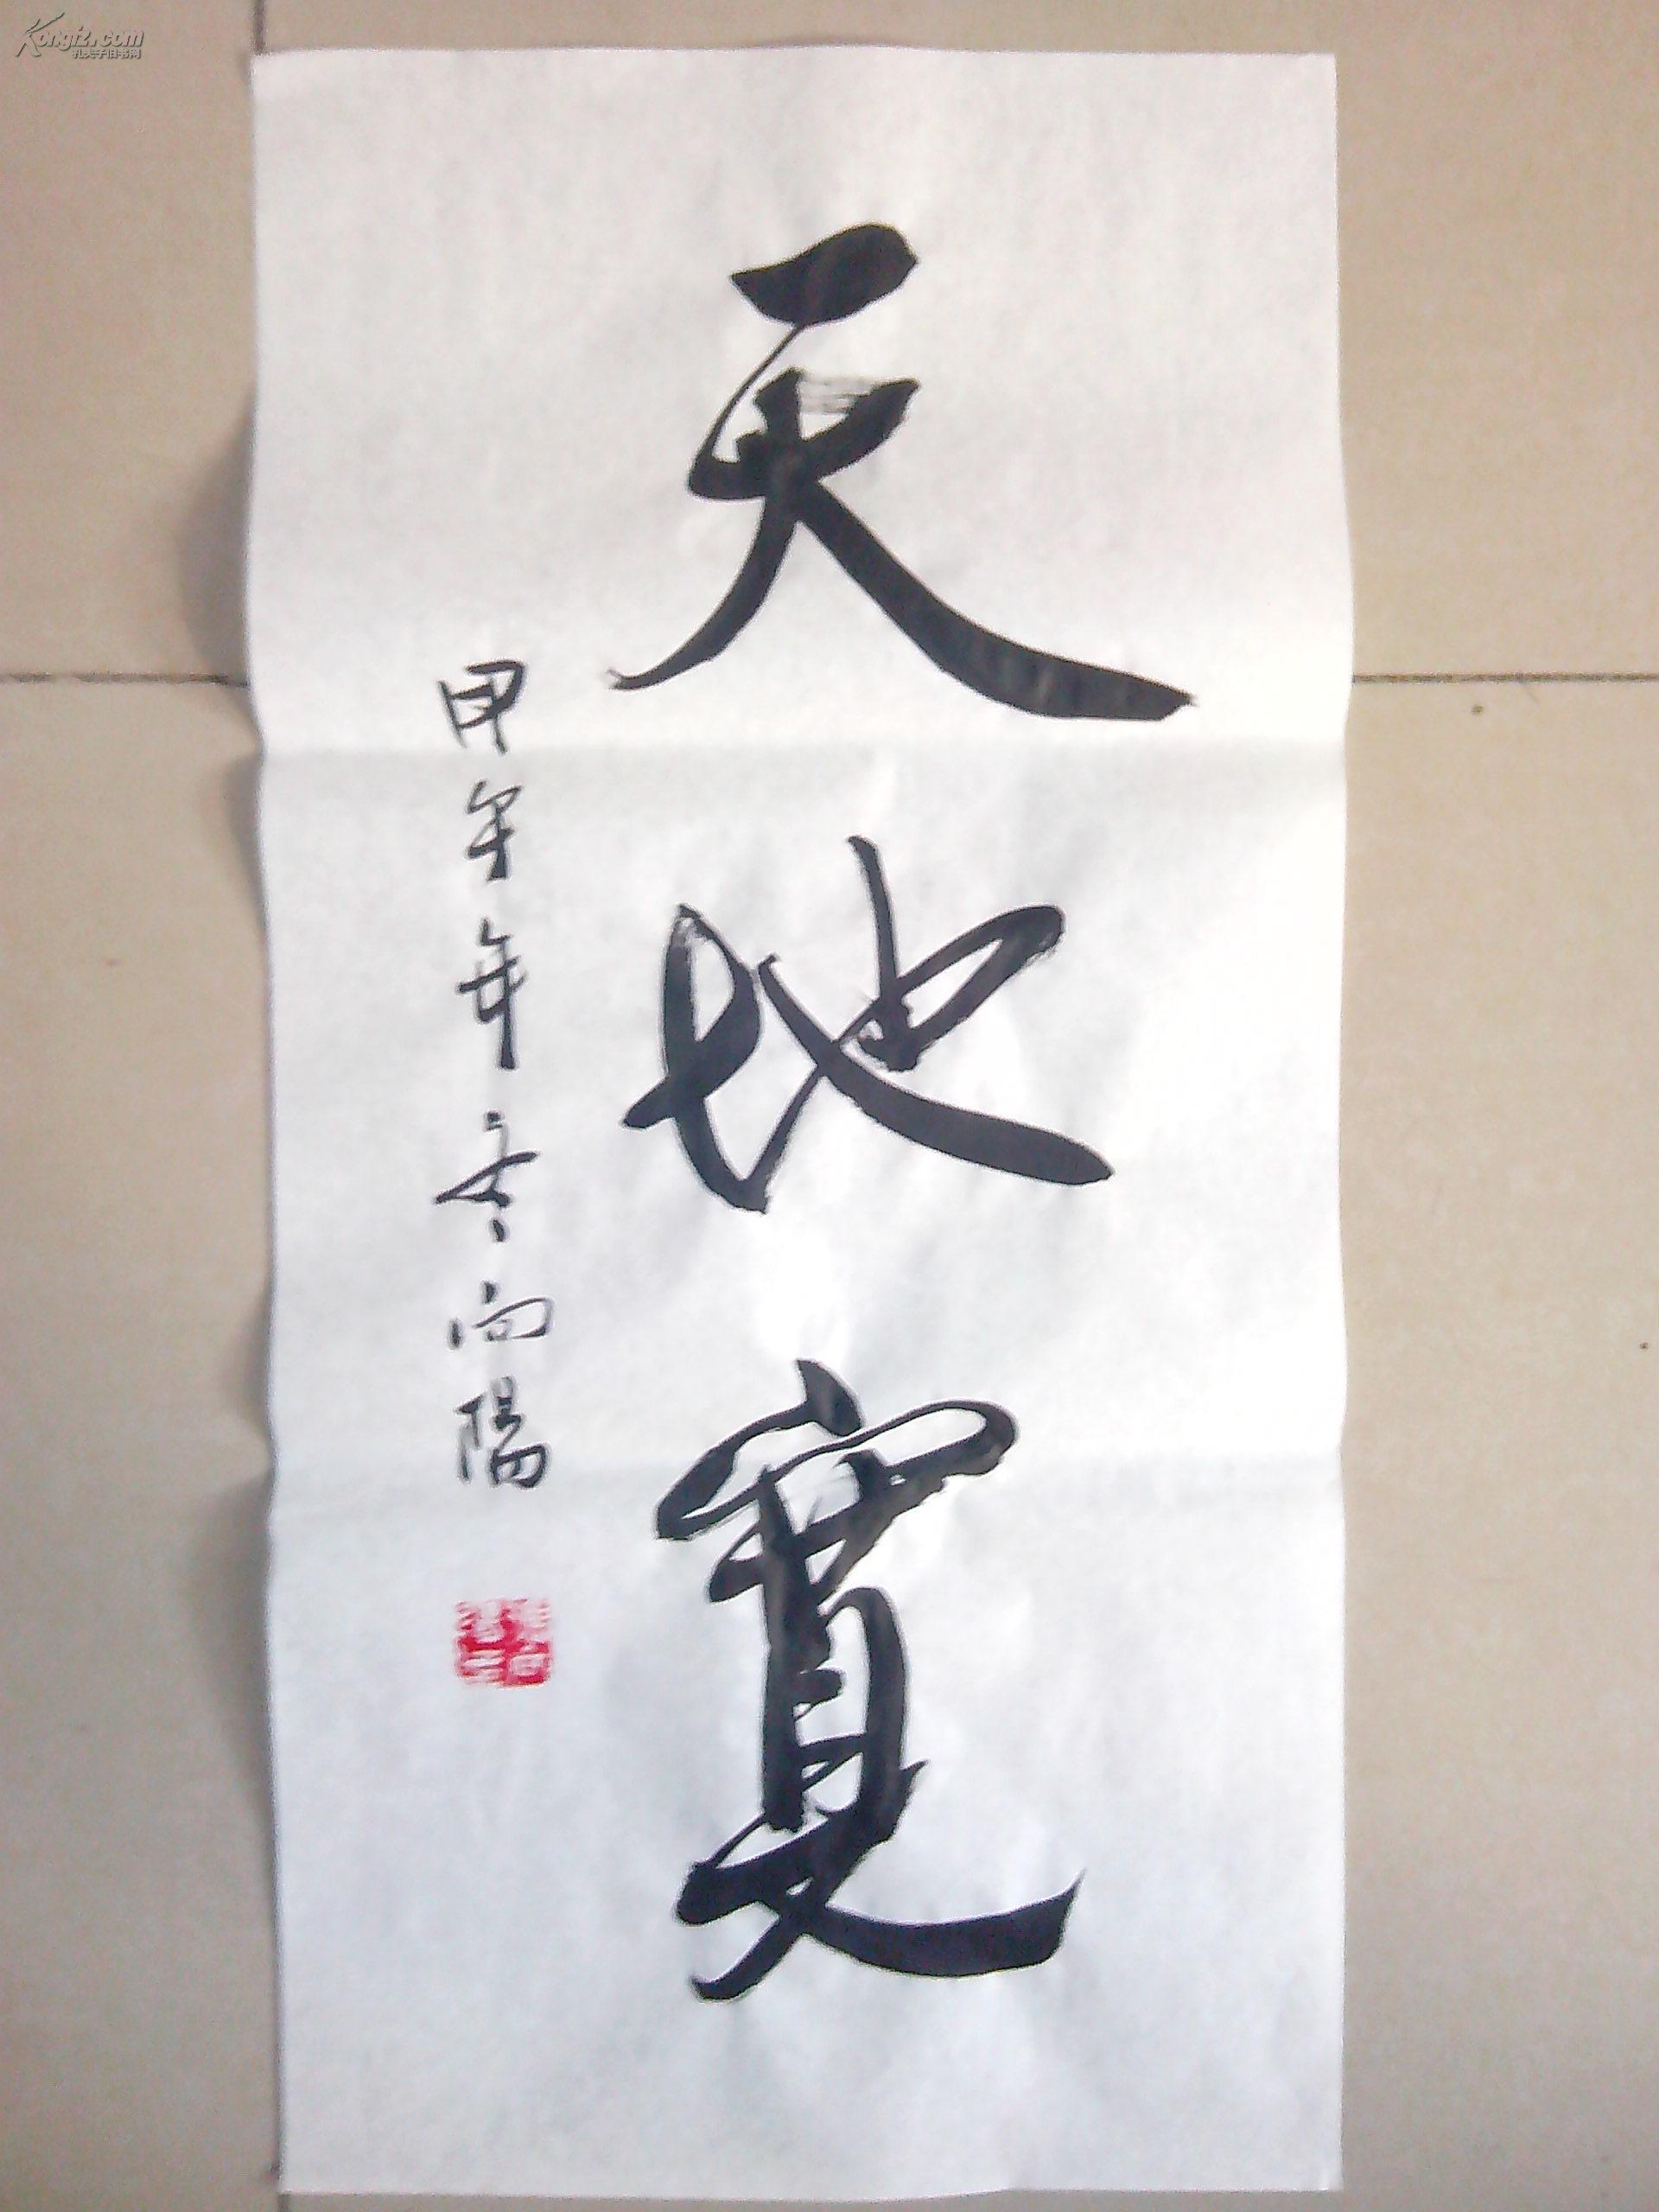 天地寬
甲午年冬向陽
Kongfz.com
孔夫子旧书网